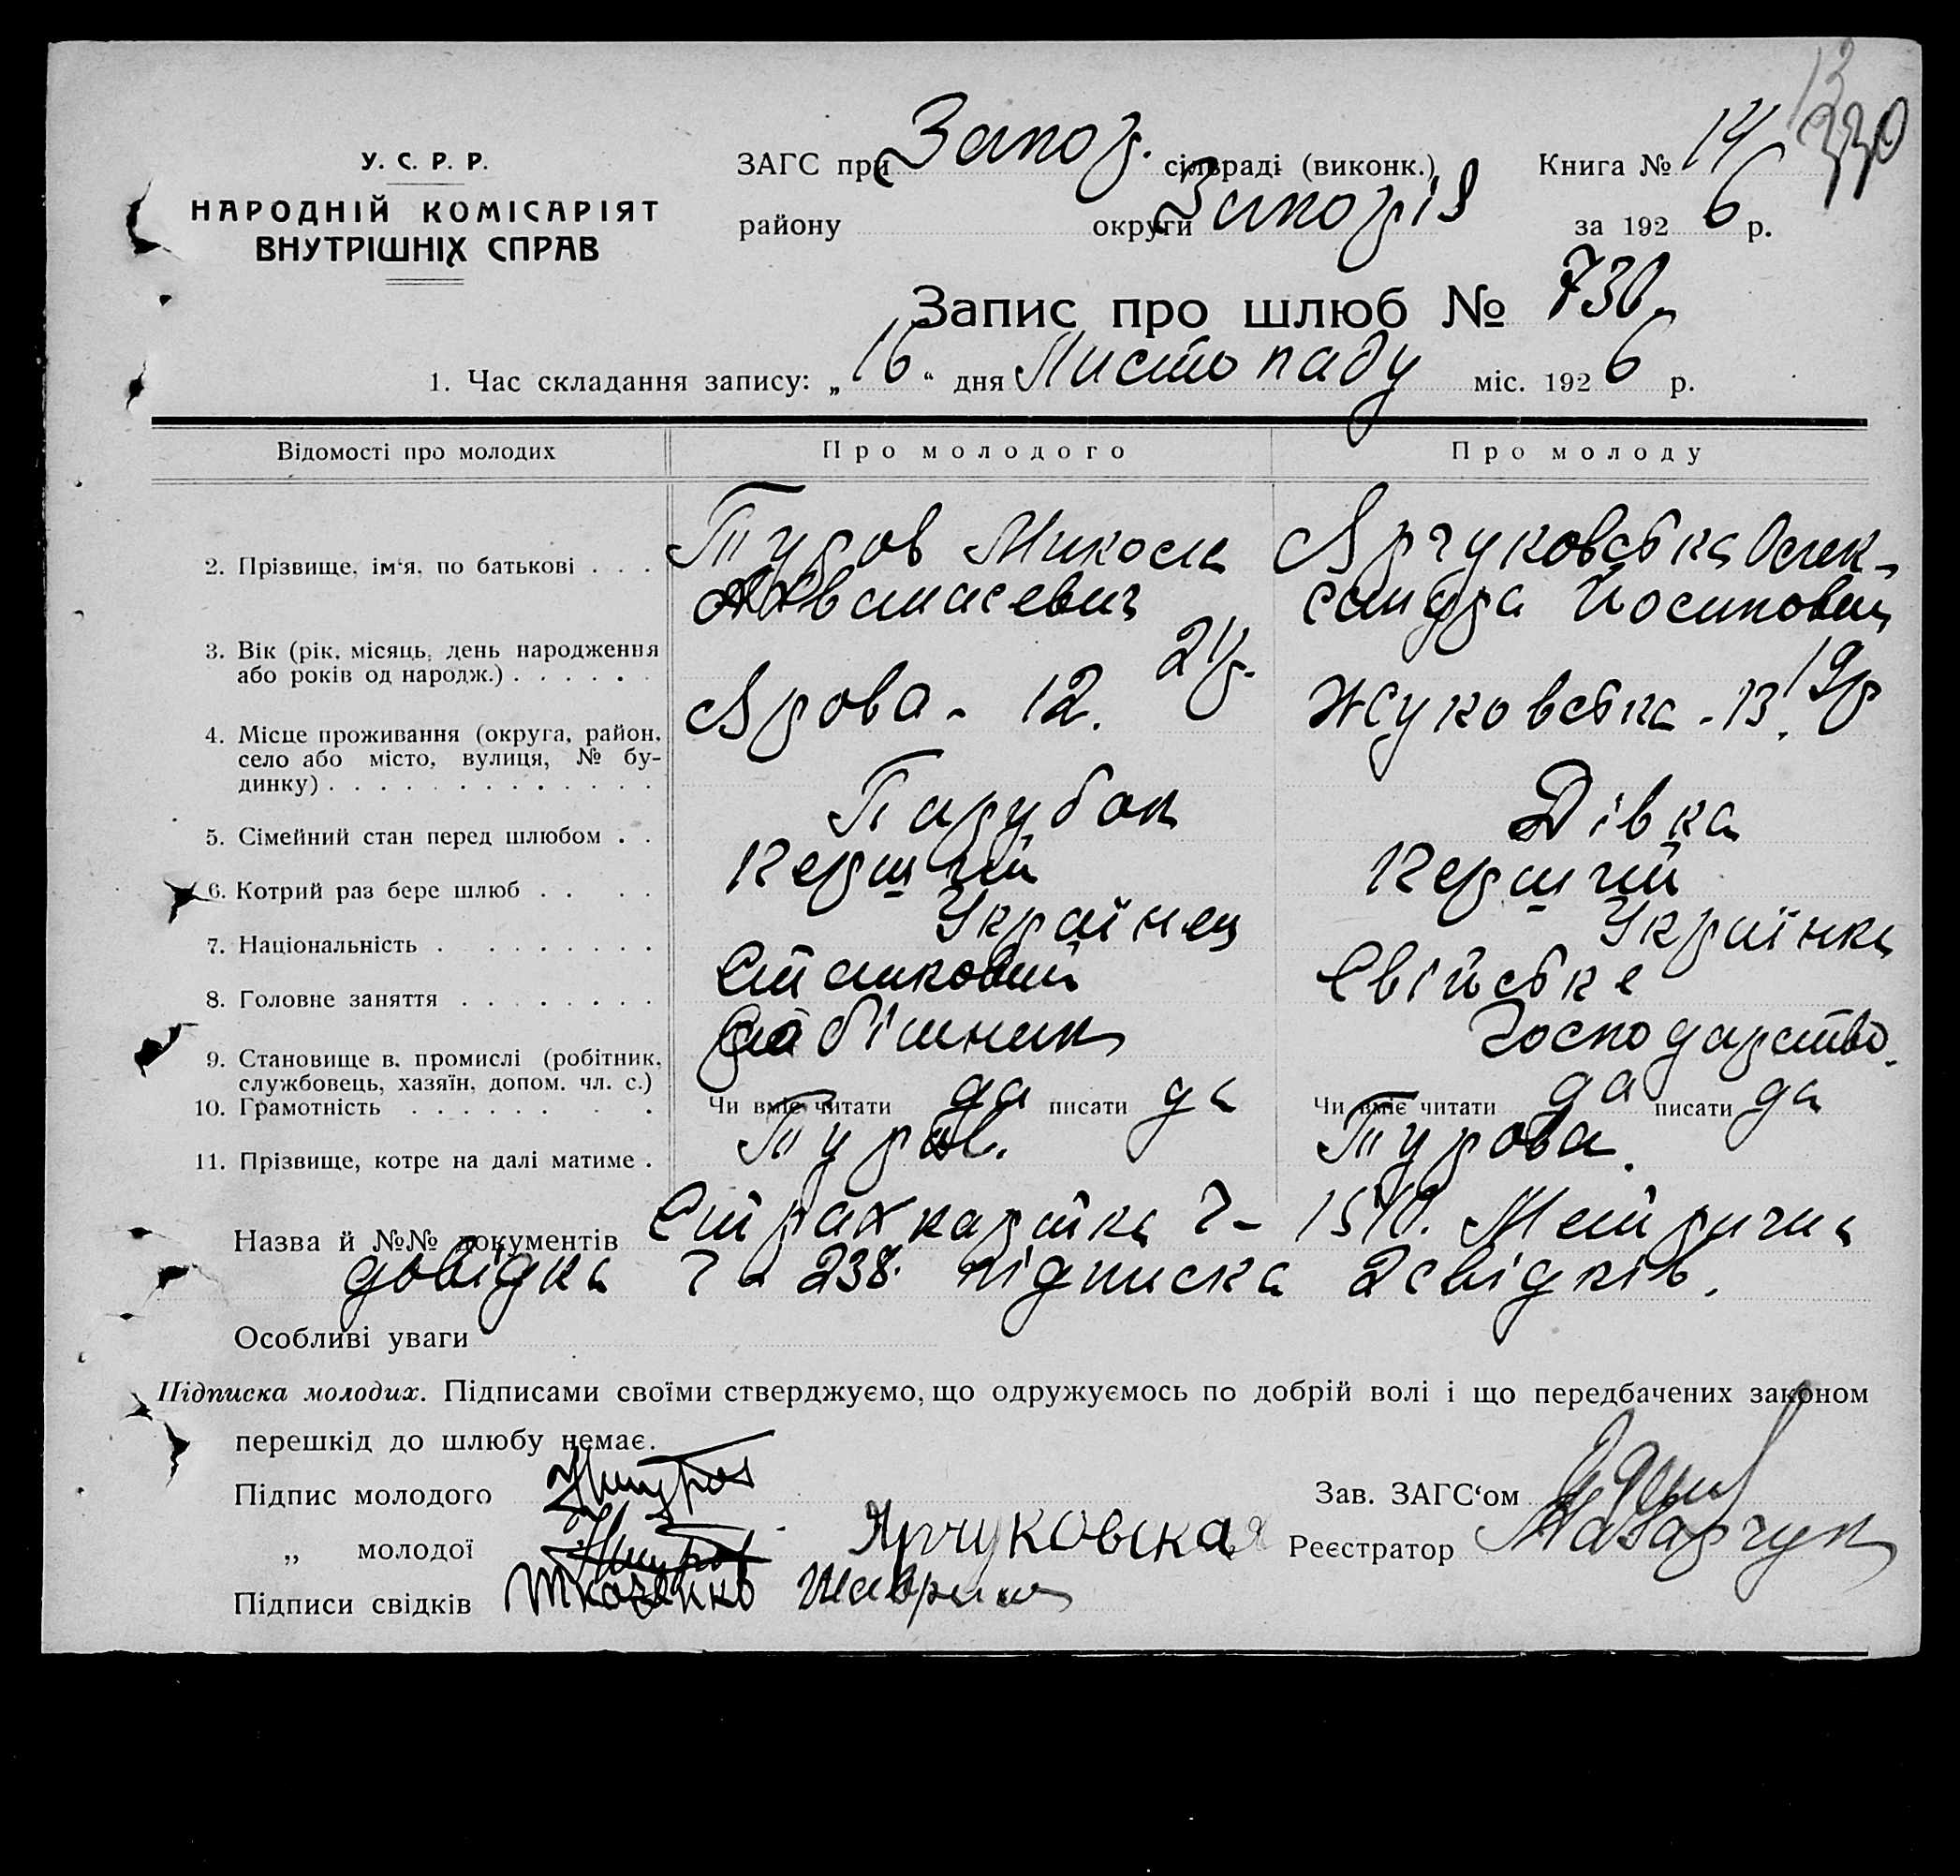 13
330
У. С. Р. Р.
НАРОДНІЙ КОМІСАРІЯТ
ВНУТРІШНІХ СПРАВ
ЗАГС при Запор. сільраді (виконк.) Книга № 14
району округи Запоріз за 1926 р.
Запис про шлюб № 730
1. Час складання запису: „16“ дня Листопаду міс. 1926 р.
Відомості про молодих Про молодого Про молоду
2. Прізвище, ім‘я, по батькові . . . Туров Микола Ярчуковська Олек-
Афанасевич сандра Йосиповна
3. Вік (рік, місяць, день народження 21р. 19р
або років од народж.) . . . . . .
Ярова - 12. Жуковська - 13.
4. Місце проживання (округа, район,
село або місто, вулиця, № бу-
динку) . . . . . . . . . . . . .
5. Сімейний стан перед шлюбом . . Парубок Дівка
6. Котрий раз бере шлюб . . . . Перший Перший
7. Національність . . . . . . . . . Українец Українка
8. Головне заняття . . . . . . . . Свійське
9. Становище в. промислі (робітник, робітник господарство.
службовець, хазяїн, допом. чл. с.)
10. Грамотність . . . . . . . . . Чи вміє читати да писати да Чи вміє читати да писати да
11. Прізвище, котре на далі матиме . Туров. Турова.
Назва й №№ документів Страхкартка Ч- 1510. Метрична
довідка Ч- 238. підписка 2 свідків.
Особливі уваги
Підписка молодих. Підписами своїми стверджуємо, що одружуємось по добрій волі і що передбачених законом
перешкід до шлюбу немає.
Підпис молодого Зав. ЗАГС‘ом
„ молодої Ярчуковская Реєстратор Назарчук
Підписи свідків Ткаченко